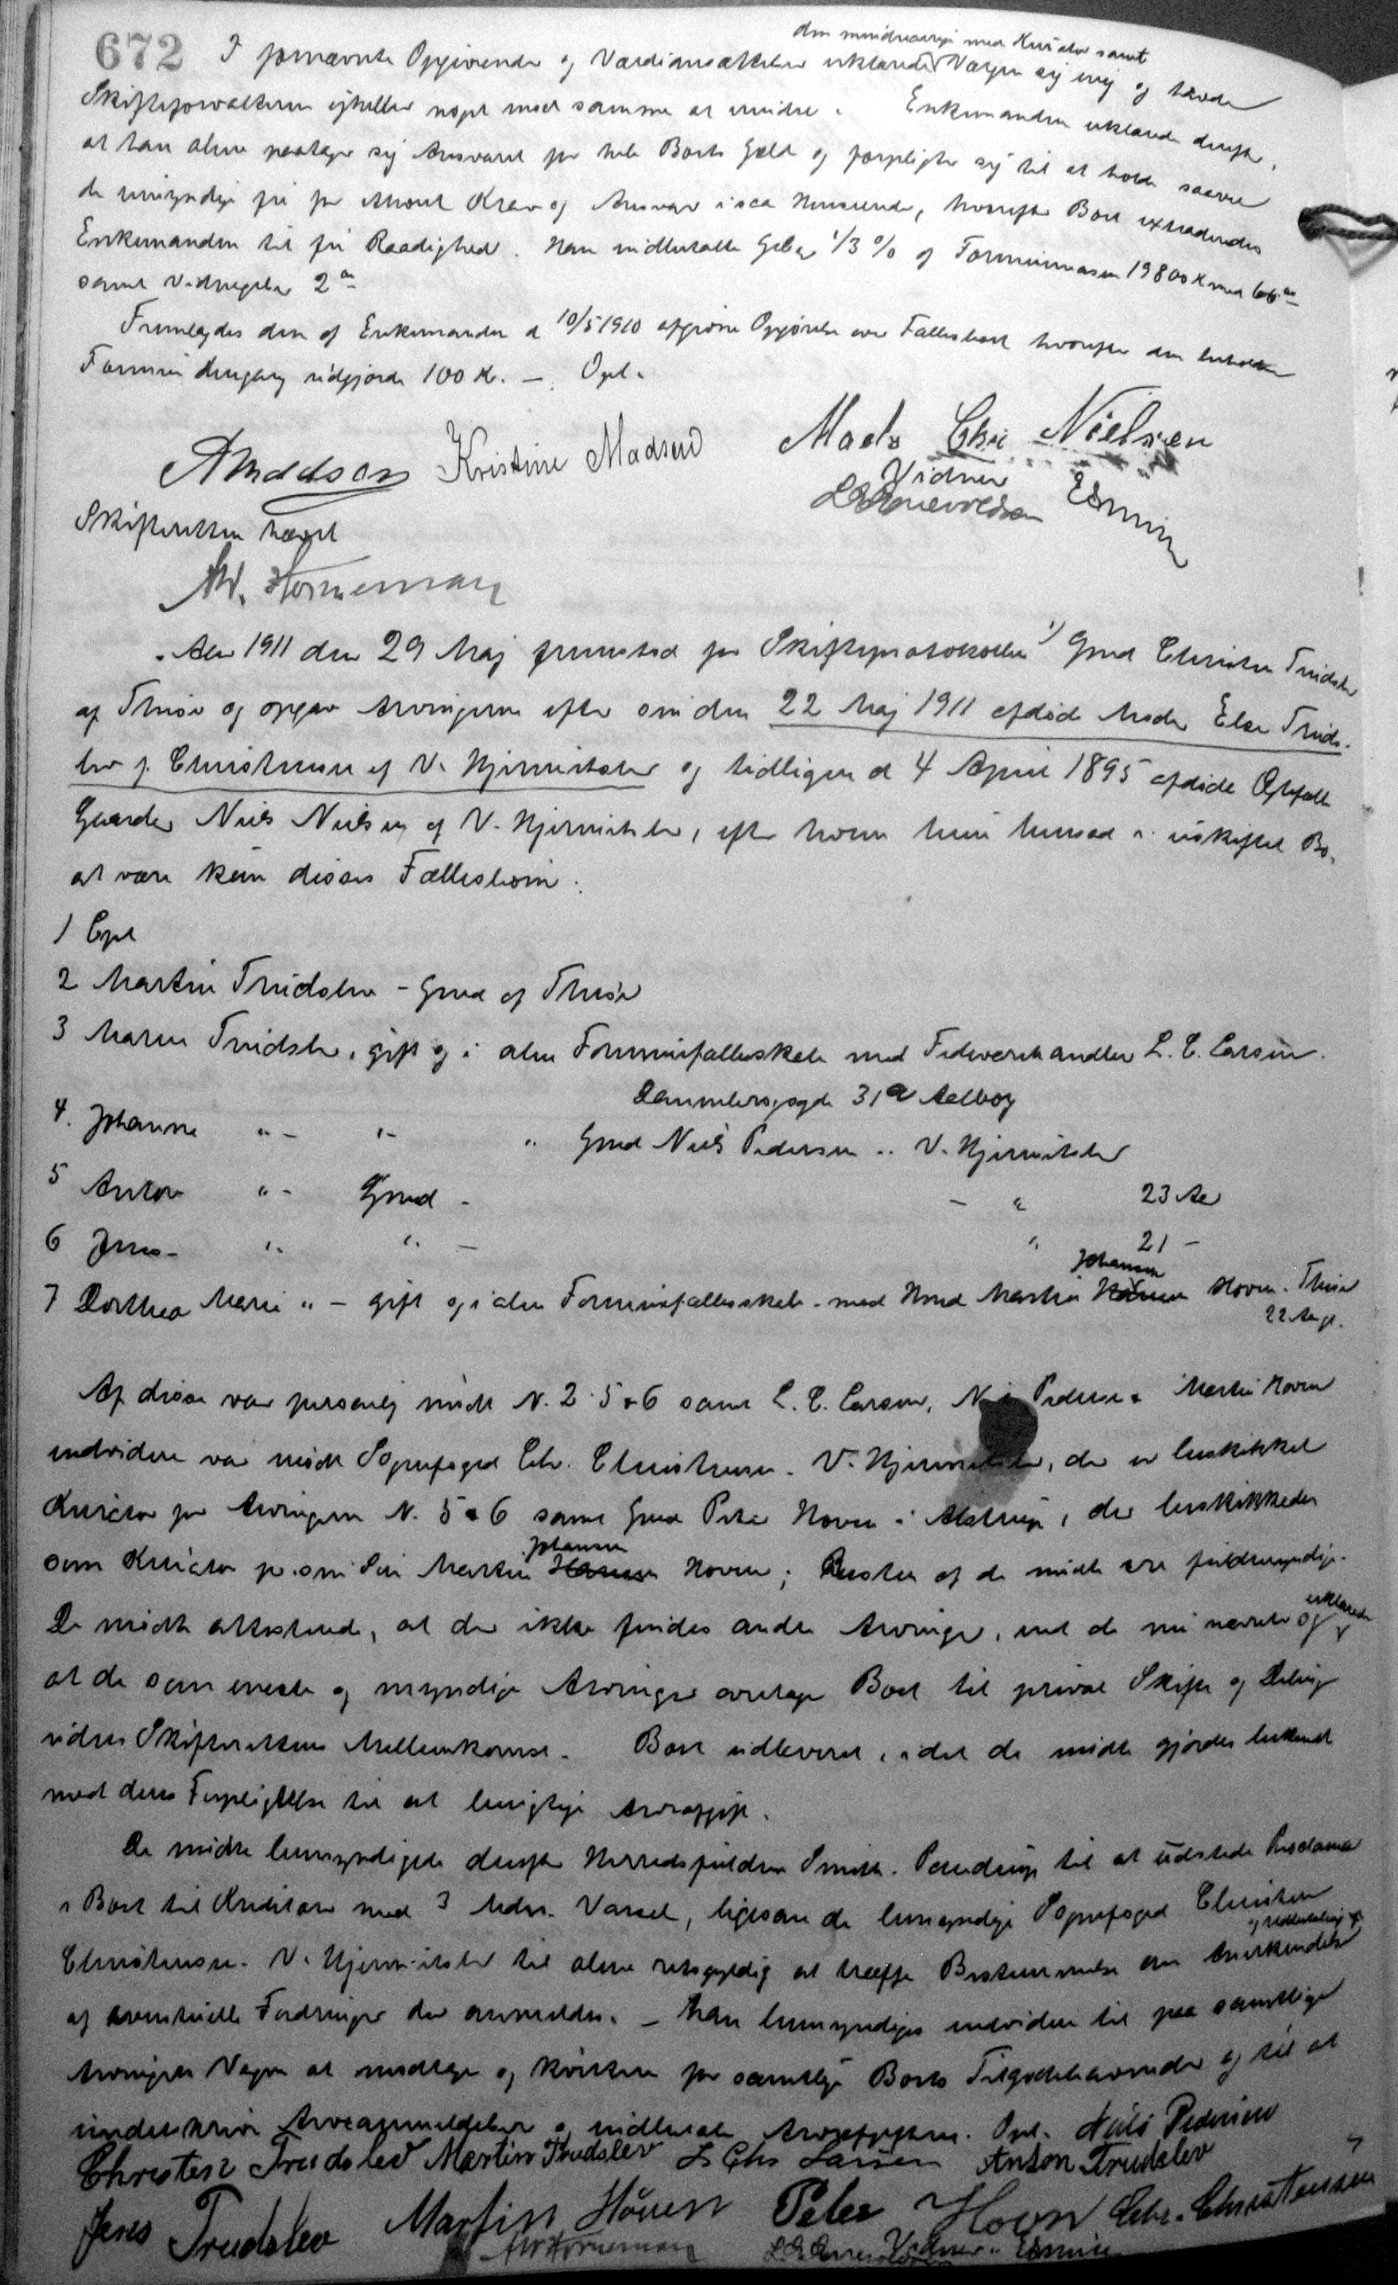 672
den mindreaarige med Kurator samt
I fornævnte Opgivende og Værdiansættelse erklærede Værgen sig enig og havde
Skifteforvalteren ejheller noget mod samme at erindre. Enkemanden erklærede derefter,
at han alene paatager sig Ansvaret for hele Boets Gæld og forpligter sig til at holde saavel
de umyndige fri for ethvert Krav og Ansvar i saa Henseende, hvorefter Boet extraderedes
Enkemanden til fri Raadighed. Han indbetalte Gebyr 1/3 % af Formuemassen 19800 K med 66 K
samt Vidnegebyr 2
Fremlagdes den af Enkemanden d 10/5 1910 afgivne Opgørelse over Fællesboet hvorefter den
Formue udgjorde 100 K. — Opl.
AMadsen Kristine Madsen Mads Chr Nielsen
Vidner
LAEnevoldsen
Skifteretten hævet
AW. Horneman
Aar 1911 den 29 Maj fremstod for Skifteprotokollen 1) Gmd Christen Trudslev
af Thise og opgav Arvingerne efter sin den 22 Maj 1911 afdøde Moder Else Truds-
lev f. Christensen af V. Hjermitslev og tidligere d 4 April 1895 afdøde Ægtefælle
Gaardejer Niels Nielsen af V. Hjermitslev, efter hvem hun hensad i uskiftet Bo,
at være kun disses Fællesbørn:
1 Cpt
2 Martin Trudslev - Gmd af Thise
3 Maren Trudslev, gift og i alm Formuefællesskab med Fedevarehandler L. C. Larsen.
Danmarksgade 31a Aalborg
4. Johanne " - " - " Gmd Niels Pedersen " V. Hjermitslev
5 Anton " - Gmd - - " 23 Aar
6 Jens - " - " - " 21 -
Johansen
7 Dorthea Marie " - gift og i alm Formuefællesskab - med Hmd Martin Hansen Hoven - Thise
22 Aar gl.
Af disse var personlig mødt N. 2. 5 & 6 samt L. C. Larsen, Niels Pedersen & Martin Hoven
endvidere var mødt Sognefoged Chr. Christensen - V. Hjermitslev, der er beskikket
Kurator for Arvingerne N. 5 & 6 samt Gmd Peter Hoven i Alstrup, der beskikkedes
Johansen
som Kurator for sin Søn Martin Hansen Hoven; Resten af de mødte ere fuldmyndige.
erklærede
De mødte attesterede, at der ikke findes andre Arvinger, end de nu nævnte og
at de som eneste og myndige Arvinger overtage Boet til privat Skifte og Deling
uden Skifterettens Mellemkomst. Boet udleveret, idet de mødte gjordes bekendt
med deres Forpligtelse til at berigtige Arveafgift.
De mødte bemyndigede derefter Herredsfuldm Smith - Pandrup til at udstede Proclama
i Boet til Kreditorer med 3 Mdrs. Varsel, ligesom de bemyndige Sognefoged Christen
og Udbetaling af
Christensen - V. Hjermitslev til alene retsgyldig at træffe Bestemmelse om Anerkendelse
af eventuelle Fordringer der anmeldes. - Han bemyndiges endvidere til paa samtlige
Arvingers Vegne at modtage og kvittere for samtlige Boets Tilgodehavender og til at
underskrive Arveanmeldelser og indbetale Arveafgiften. Opl. Niels Pedersen
Christen Trudslev Martin Trudslev L Chr Larsen Anton Trudslev
Jens Trudslev Martin Hoven Peter Hoven Chr. Christensen
AW Horneman Vidner